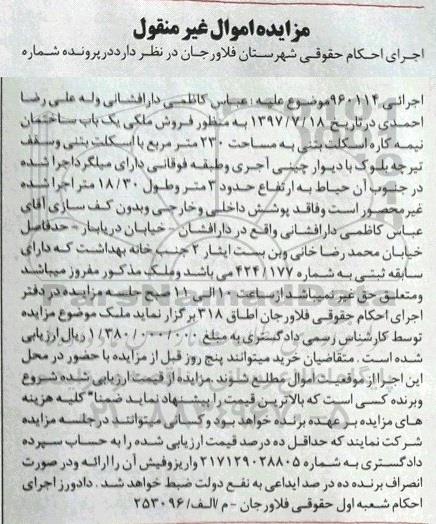 مزایده اموال غیر منقول
اجرای احکام حقوقی شهرستان فلاورجان در نظر دارد در پرونده شماره
اجرائی ۹۶۰۱۱۴ موضوع علیه : عباس کاظمی دارافشانی وله علی رضا
احمدی در تاریخ ۱۳۹۷/۷/۱۸ به منظور فروش ملکی یک باب ساختمان
نیمه کاره اسکلت بتنی به مساحت ۲۳۰ متر مربع با اسکلت بتنی وسقف
تیرچه بلوک با دیوار چینی آجری وطبقه فوقانی دارای میلگرد اجرا شده
در جنوب آن حیاط به ارتفاع حدود ۳ متر وطول ۱۸/۳۰ متر اجرا شده
غیر محصور است وفاقد پوشش داخلی وخارجی وبدون کف سازی آقای
عباس کاظمی دارافشانی واقع در دارافشان - خیابان دریابار - حدفاصل
خیابان محمد رضا خانی وبن بست ایثار ۲ جنب خانه بهداشت که دارای
سابقه ثبتی به شماره ۴۲۴/۱۷۷ می باشد وملک مذکور مفروز میباشد
ومتعلق حق غیر نمیباشد از ساعت ۱۰ الی ۱۱ صبح جلسه مزایده در دفتر
اجرای احکام حقوقی فلاورجان اطاق ۳۱۸ برگزار نماید ملک موضوع مزایده
توسط کارشناس رسمی دادگستری به مبلغ ۱/۳۸۰/۰۰۰/۰۰۰ ریال ارزیابی
شده است . متقاضیان خرید میتوانند پنج روز قبل از مزایده با حضور در محل
این اجرا از موقعیت اموال مطلع شوند .مزایده از قیمت ارزیابی شده شروع
وبرنده کسی است که بالاترین قیمت را پیشنهاد نماید ضمنا" کلیه هزینه
های مزایده بر عهده برنده خواهد بود و کسانی میتوانند در جلسه مزایده
شرکت نمایند که حداقل ده درصد قیمت ارزیابی شده را به حساب سپرده
دادگستری به شماره ۲۱۷۱۲۹۰۲۸۸۰۵ واریز وفیش آن را ارائه ودر صورت
انصراف برنده ده در صد ایداعی به نفع دولت ضبط خواهد شد . دادورز اجرای
احکام شعبه اول حقوقی فلاورجان - م /الف/ ۲۵۳۰۹۶